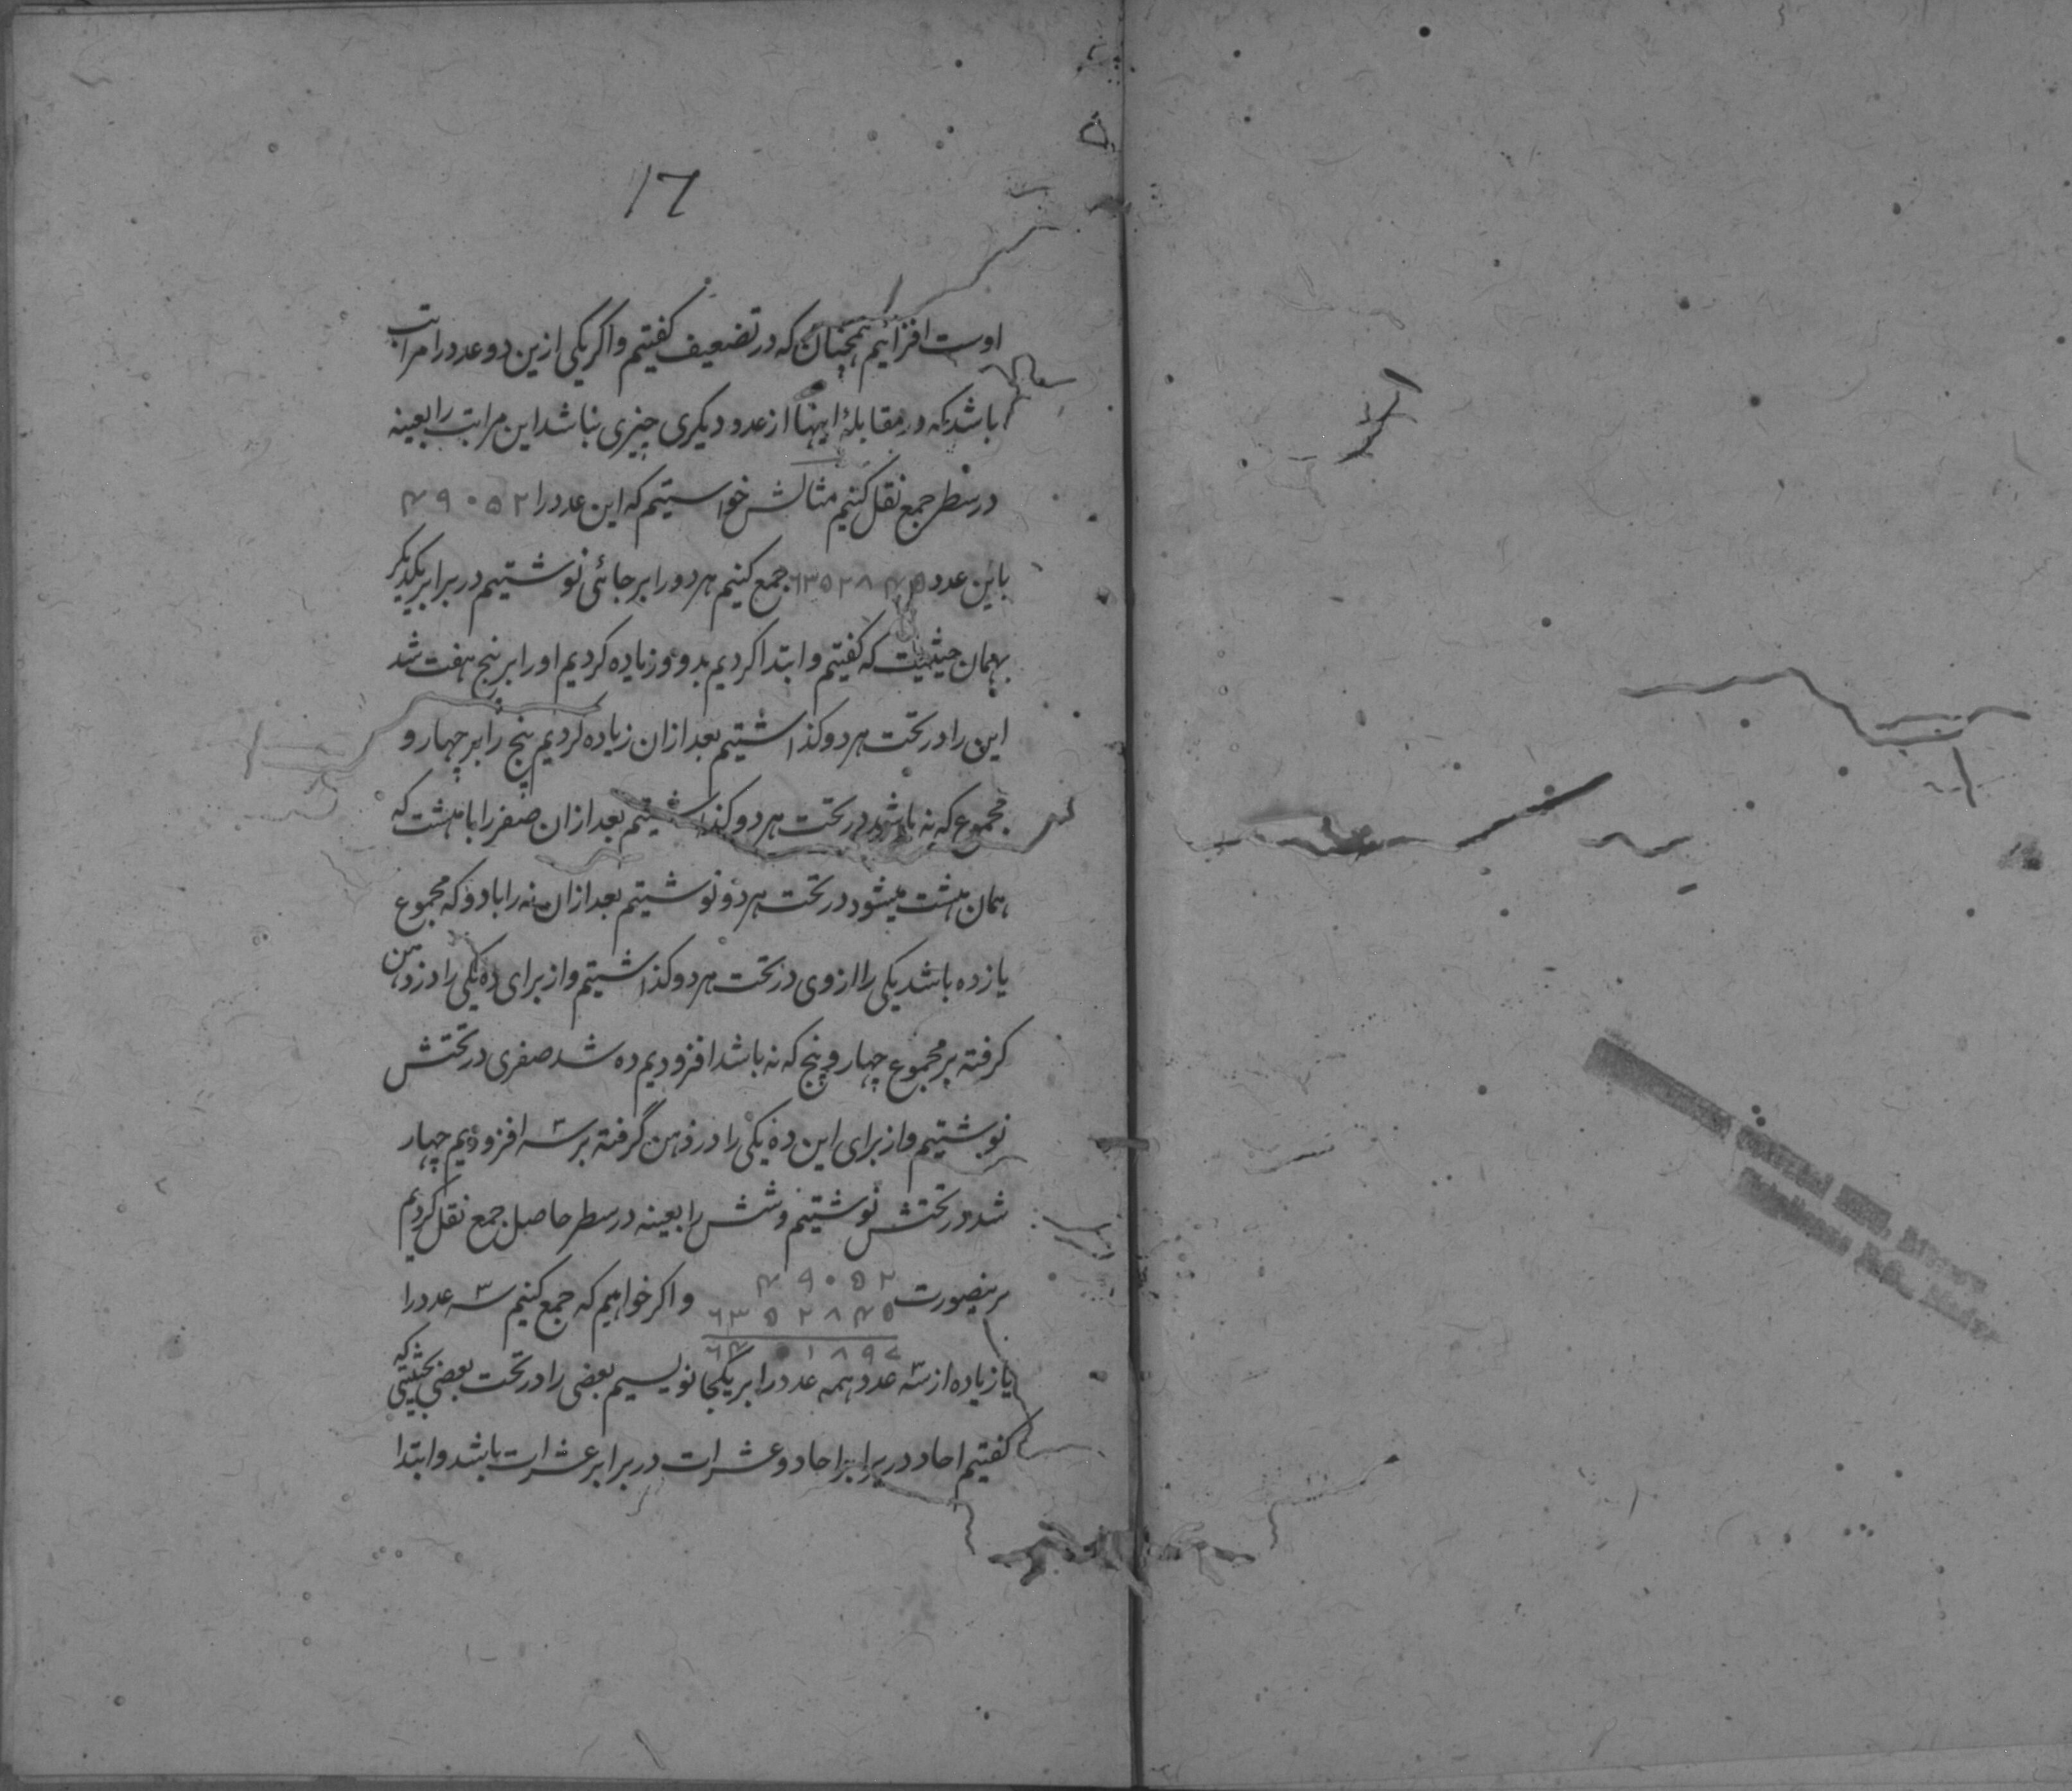 ١٦
اوست افزائیم همچنان که در تضعیف کفتیم و اکر یکی ازین دو عدد را مراتب
باشد که در مقابلهٔ اینها از عدد دیکری چیزی نباشد این مراتب را بعینه
در سطر جمع نقل کنیم مثالش خواستیم که این عدد را ۴۹۰۵۲
باین عدد ۶۳۵۲۸۴۵ جمع کنیم هر دو را بر جائی نوشتیم در برابر یکدیکر
بهمان حیثیت که کفتیم و ابتدا کردیم بدو و زیاده کردیم او را بر پنج هفت شد
این را در تحت هر دو کذاشتیم بعد ازان زیاده کردیم پنج را بر چهار و
مجموع که نه باشد در تحت هر دو کذاشتیم بعد ازان صفر را با هشت که
همان هشت میشود در تحت هر دو نوشتیم بعد ازان نه را با دو که مجموع
یازده باشد یکی را از وی در تحت هر دو کذاشتیم و از برای ده یکی را در ذهن
کرفته بر مجموع چهار و پنج که نه باشد افزودیم ده شد صفری در تحتش
نوشتیم و از برای این ده یکی را در ذهن گرفته بر سه افزودیم چهار
شد در تحتش نوشتیم و شش را بعینه در سطر حاصل جمع نقل کردیم
برینصورت ۴۹۰۵۲ و اکر خواهیم که جمع کنیم سه عدد را
۶۳۵۲۸۴۵
۶۴۰۱۸۹۷
یا زیاده از سه عدد همه عدد را بر یکجا نویسیم بعضی را در تحت بعضی بحیثیتی که
کفتیم احاد در برابر احاد و عشرات در برابر عشرات باشد و ابتدا